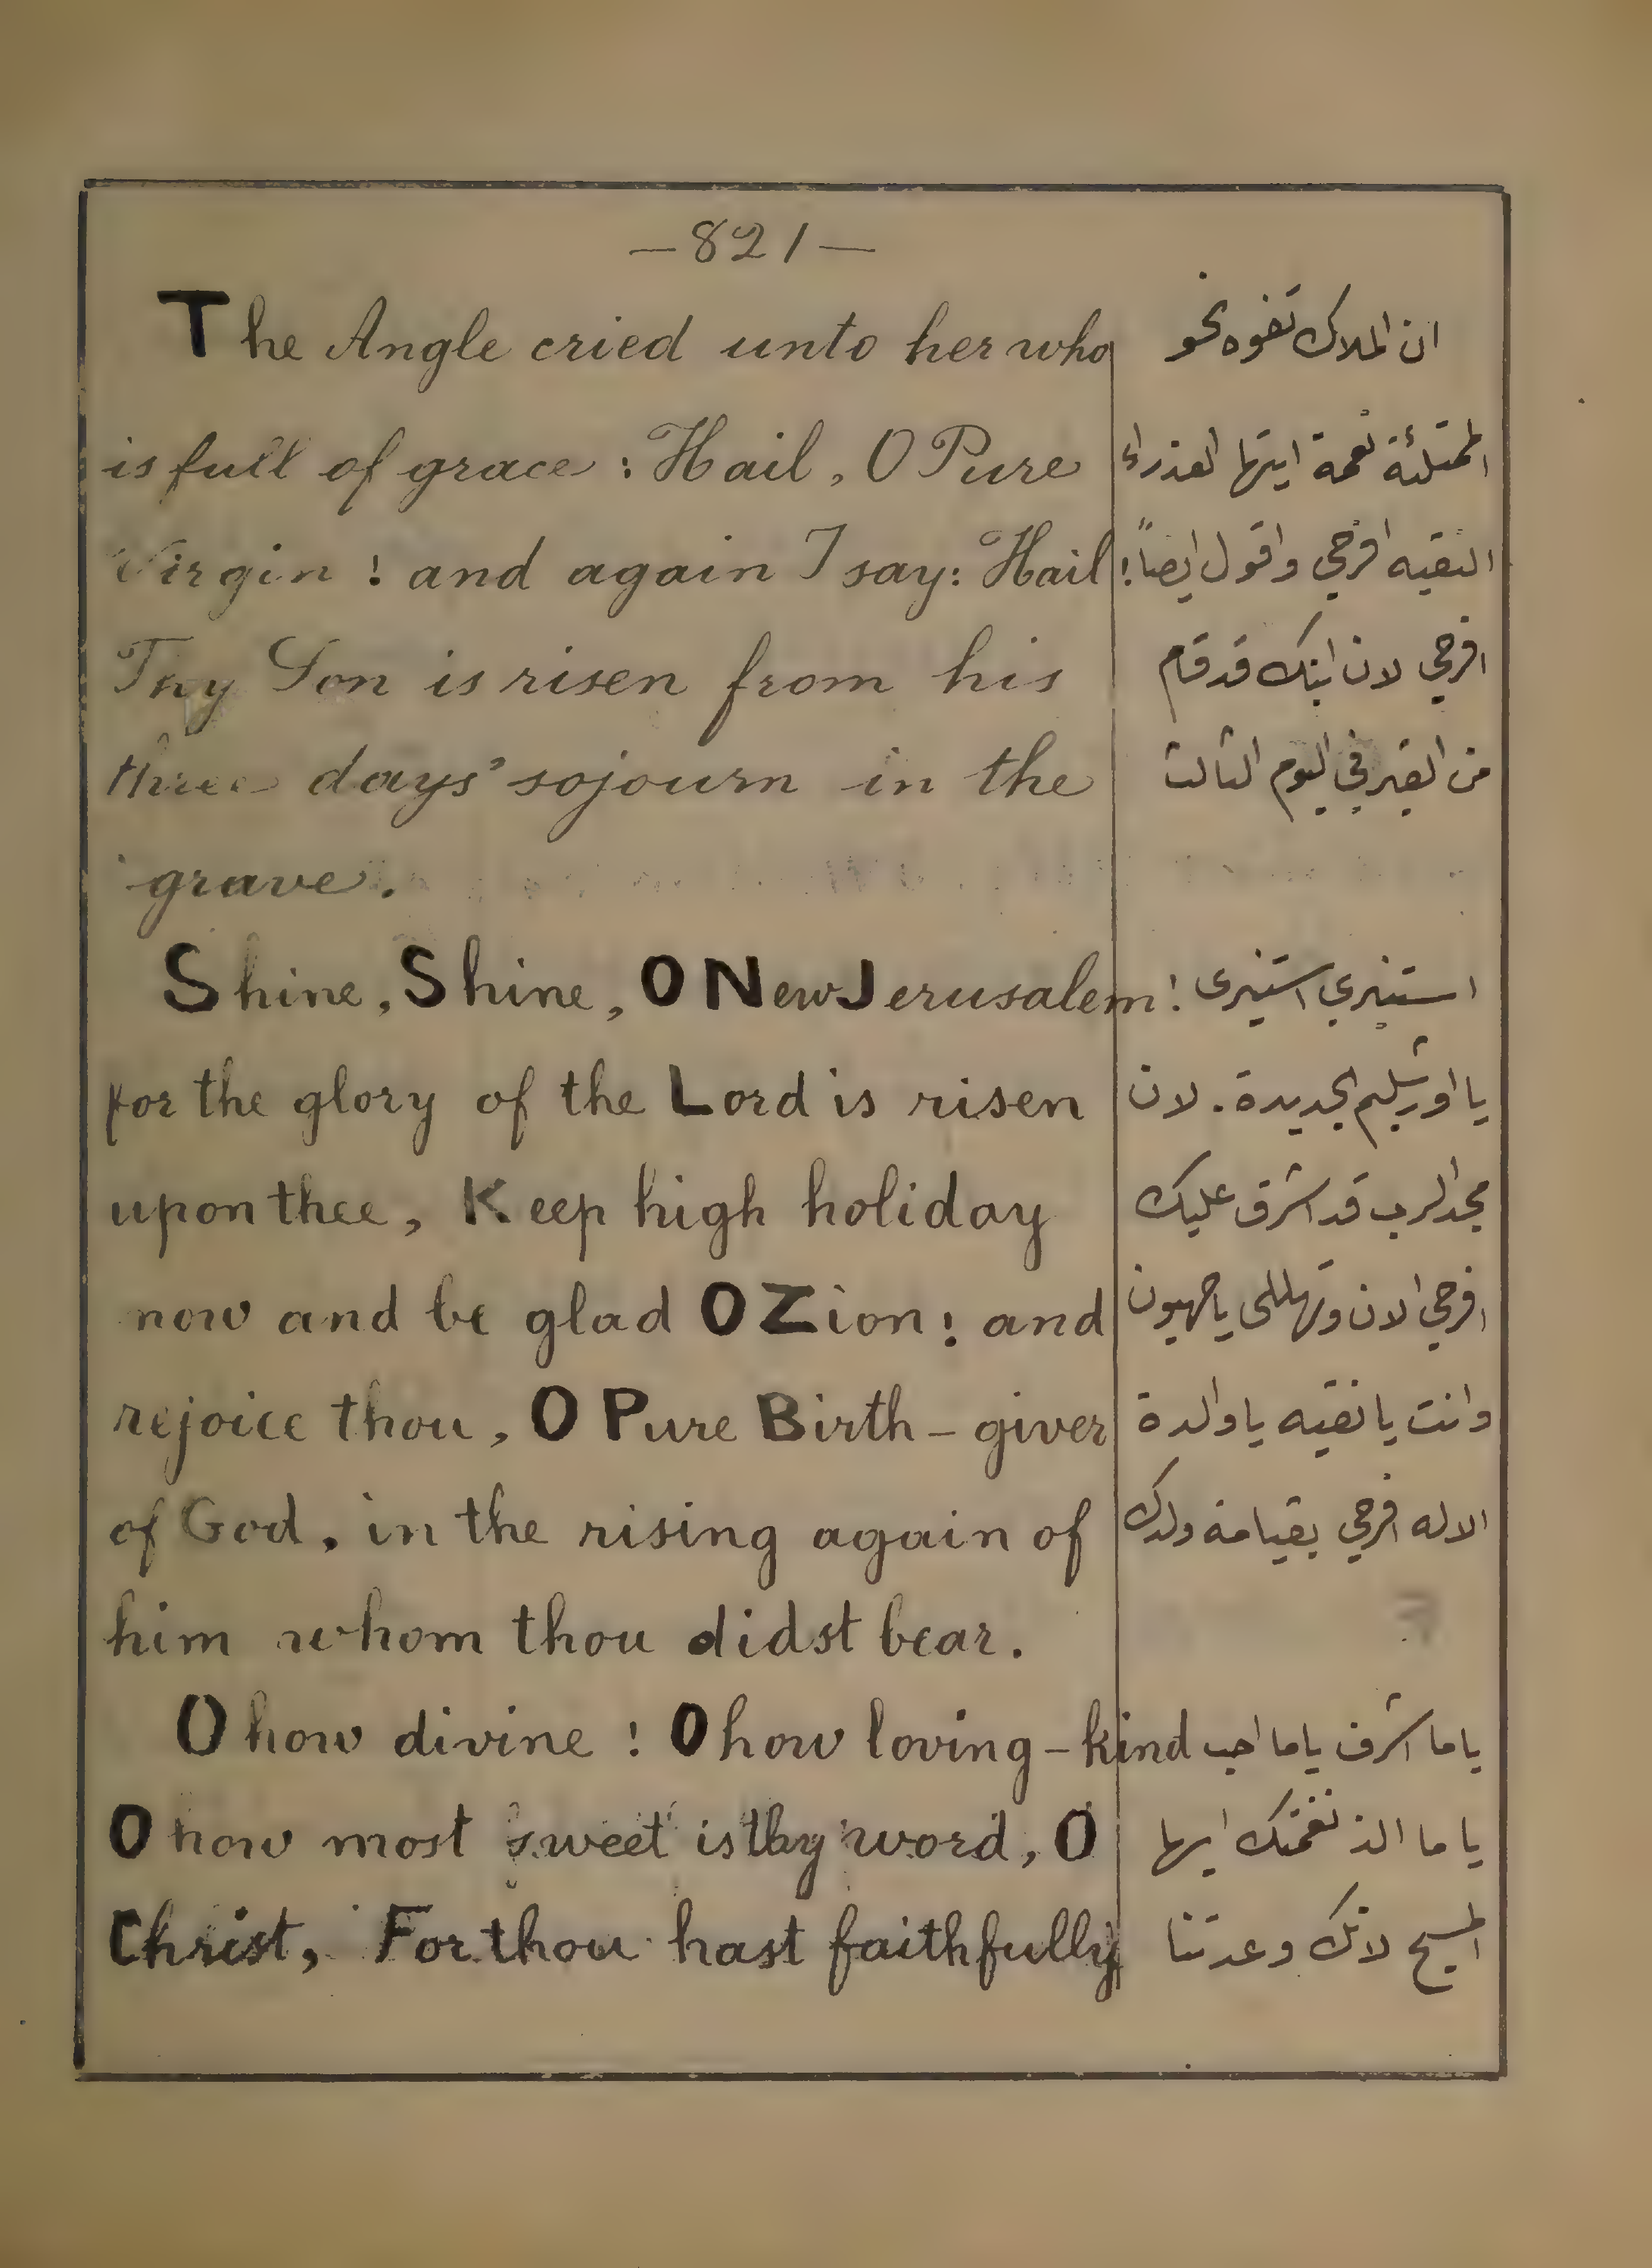 —821—
The Angle cried unto her who
is full of grace : Hail, O Pure
Virgin ! and again I say: Hail!
Thy Son is risen from his
three days' sojourn in the
grave.
Shine, Shine, O New Jerusalem!
for the glory of the Lord is risen
upon thee, Keep high holiday
now and be glad O Zion! and
rejoice thou, O Pure Birth-giver
of God, in the rising again of
him whom thou didst bear.
O how divine ! O how loving-kind
O how most sweet is thy word, O
Christ, For thou hast faithfully
ان الملاك تفوه نحو
الممتلئة نعمة ايتها العذراء
النقيه افرحي واقول ايضاً
افرحي لان ابنك قد قام
من القبر في اليوم الثالث
استنيري استنيرى
يا اورشليم الجديدة. لان
مجد الرب قد اشرق عليك
افرحي الان وتهللى يا صهيون
وانت يا نقيه يا والدة
الاله افرحي بقيامة ولدك
ياما اشرف ياما احب
يا ما الذ نغمتك ايها
المسيح لانك وعدتنا